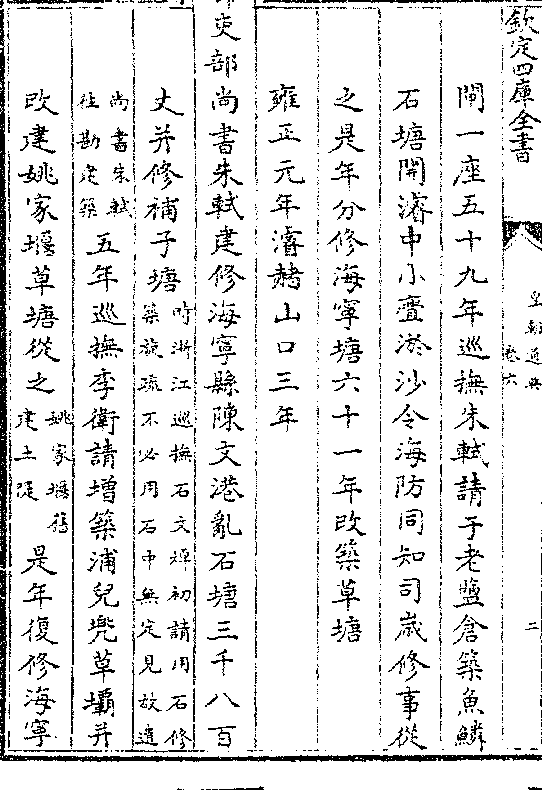 欽定四庫全書
皇朝通典
卷六
二
閘一座五十九年巡撫朱軾請于老鹽倉築魚鱗
石塘開濬中小亹淤沙令海防同知司歲修事從
之是年分修海寧塘六十一年改築草塘
雍正元年濬赭山口三年
吏部尚書朱軾建修海寧縣陳文港亂石塘三千八百
丈并修補子塘時浙江巡撫石文焯初請用石修
築旋疏不必用石中無定見故遣
尚書朱軾
往勘定築五年巡撫李衛請增築浦兒兠草壩并
改建姚家堰草塘從之姚家堰舊
建土隄是年復修海寧